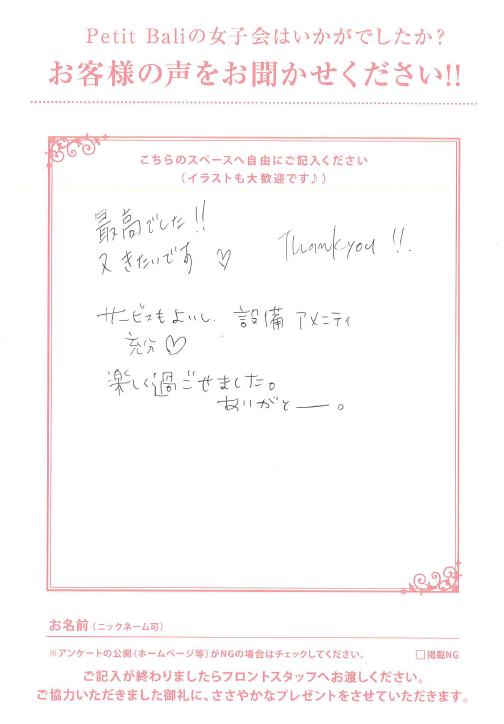 Petit Baliの女子会はいかがでしたか?
お客様の声をお聞かせください!!
こちらのスペースへ自由にご記入ください
(イラストも大歓迎です♪)
最高でした!!
又きたいです♡
Thank you!!.
サービスもよいし、設備 アメニティ
充分♡
楽しく過ごせました。
ありがとー。
お名前(ニックネーム可)
※アンケートの公開(ホームページ等)がNGの場合はチェックしてください。 □掲載NG
ご記入が終わりましたらフロントスタッフへお渡しください。
ご協力いただきました御礼に、ささやかなプレゼントをさせていただきます。